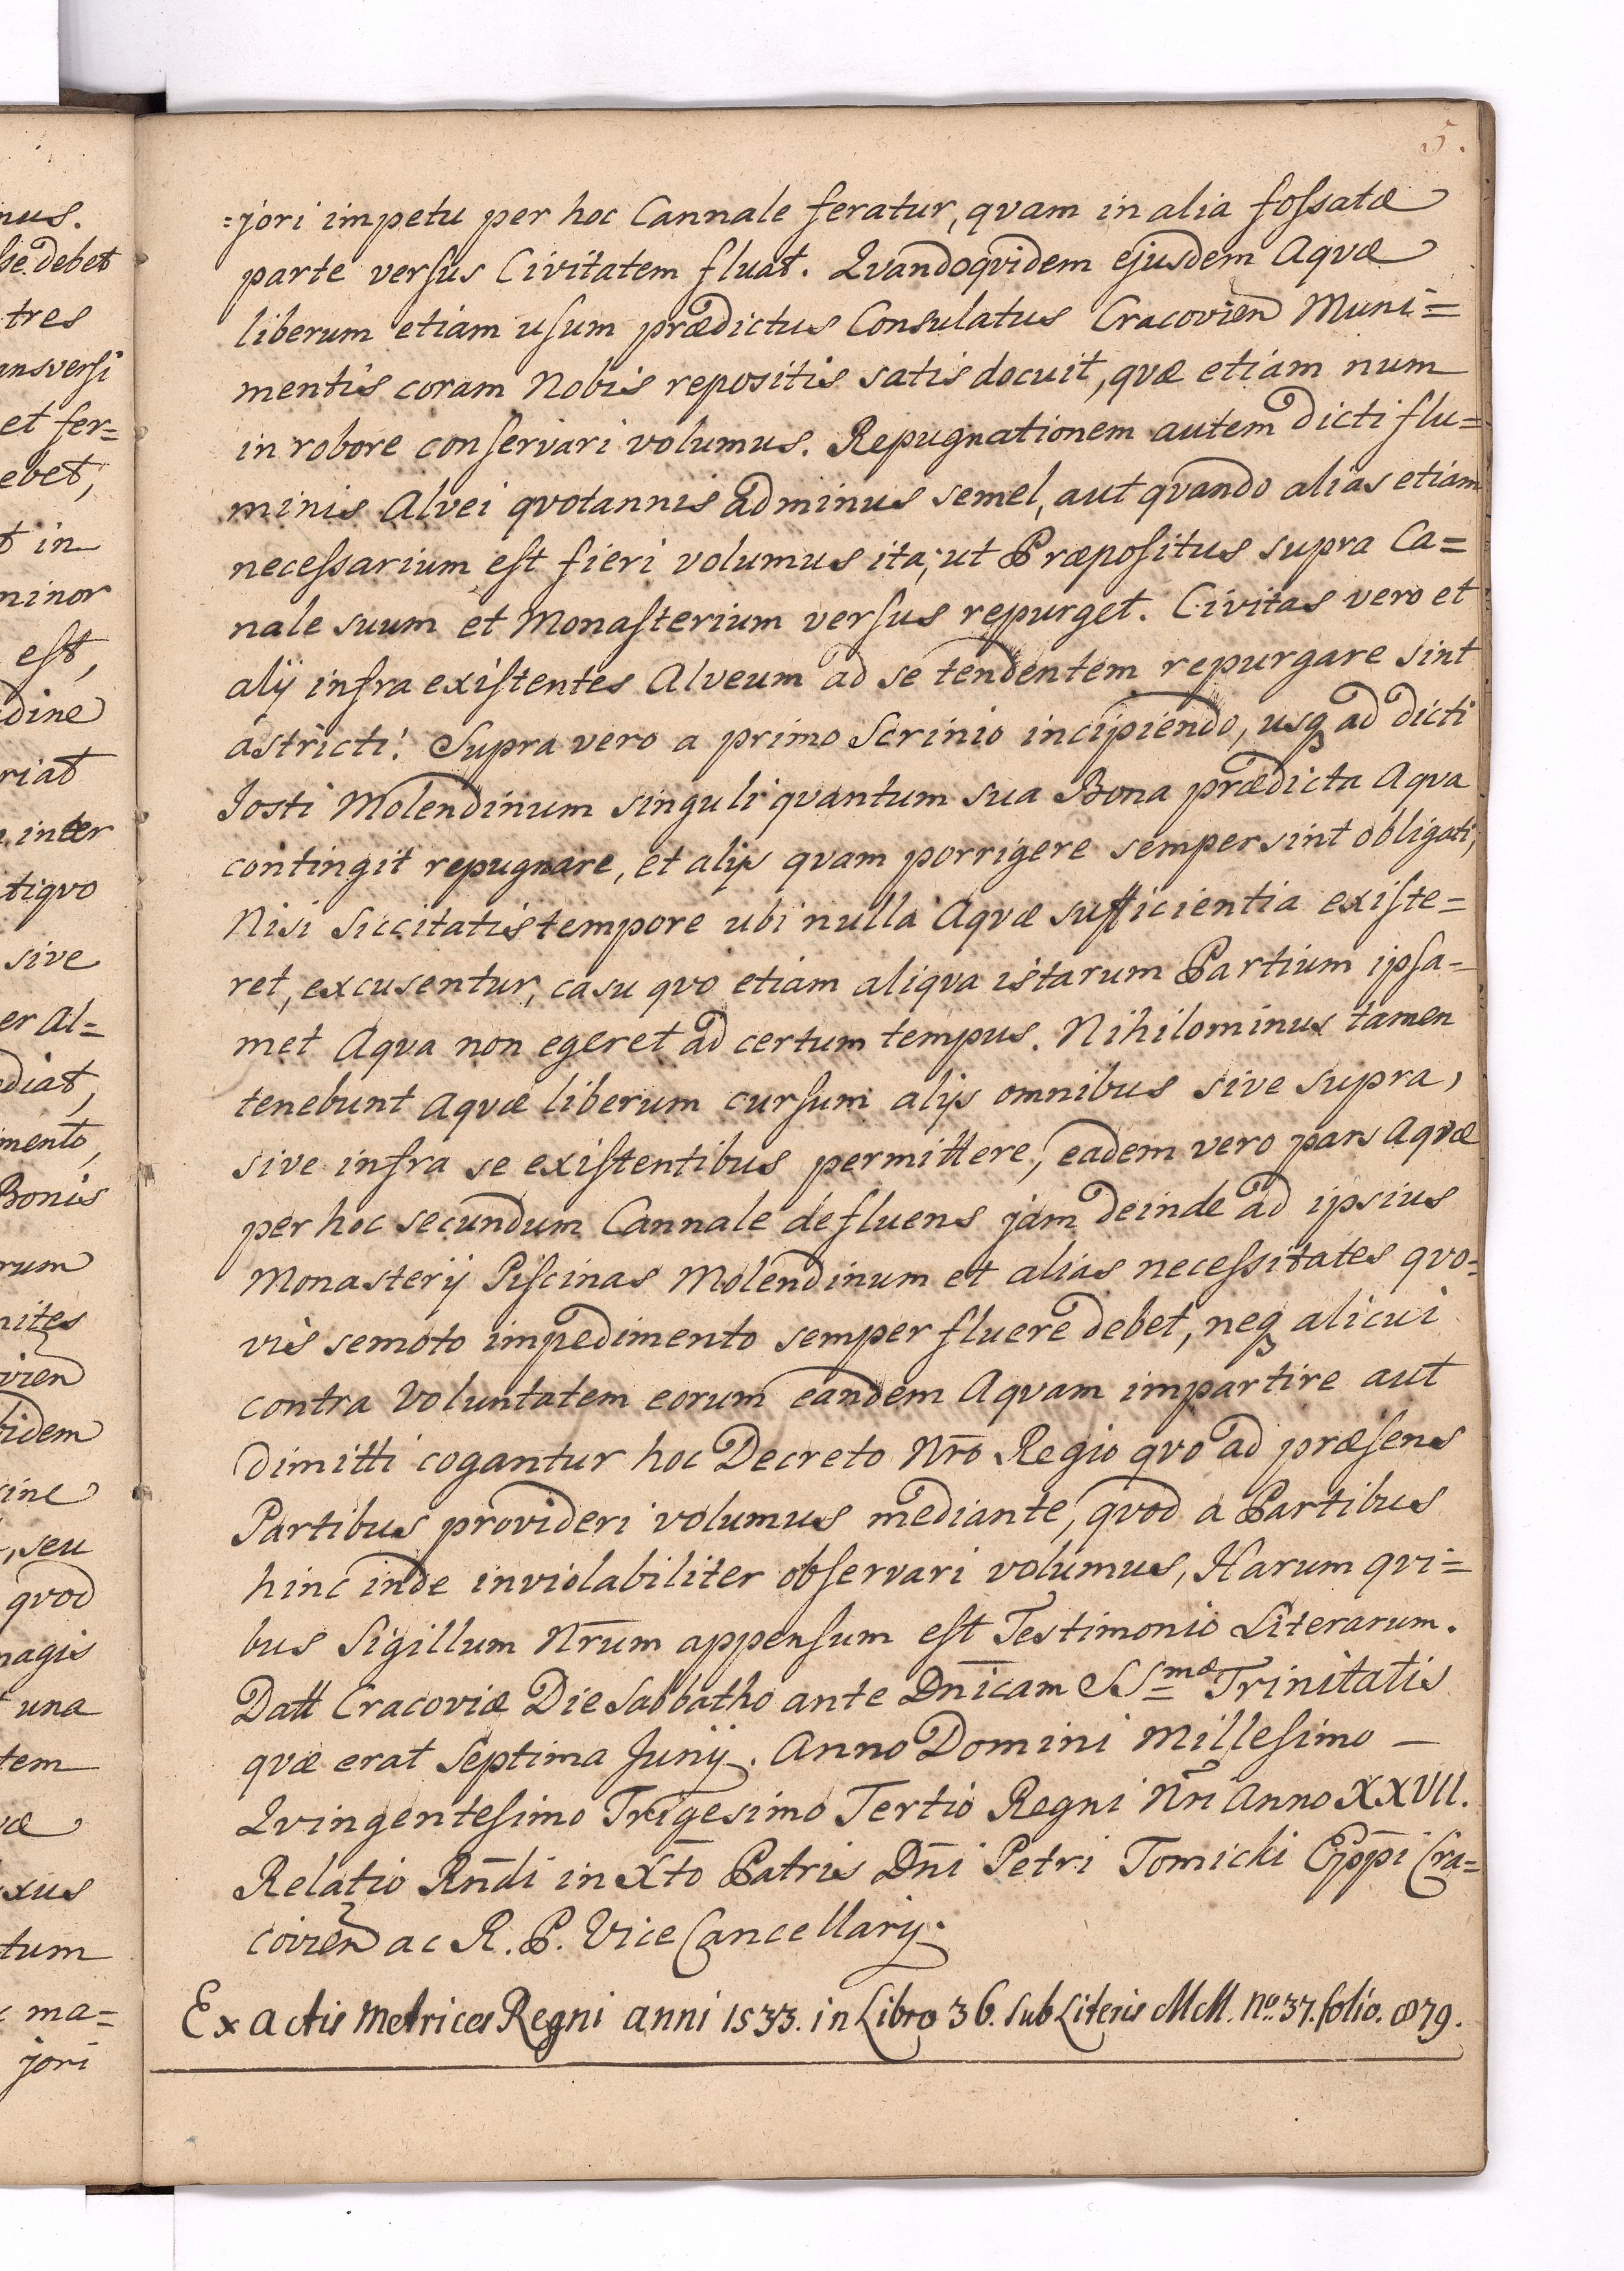 5.
=jori impetu per hoc Cannale feratur, qvam in alia fossatæ
parte versus Civitatem fluat. Qvandoqvidem ejusdem Aqvæ
liberum etiam usum prædictus Consulatus Cracovien Muni=
mentis coram Nobis repositis satis docuit, qvæ etiam num
in robore conservari volumus. Repugnationem autem dicti flu=
minis Alvei qvotannis ad minus semel, aut qvando alias etiam
necessarium est fieri volumus ita, ut Præpositus supra Ca=
nale suum et Monasterium versus repurget. Civitas vero et
alij infra existentes Alveum ad se tendentem repurgare sint
astricti. Supra vero a primo Scrinio incipiendo, usq ad dicti
Josti Molendinum singuli qvantum sua Bona prædicta Aqva
contingit repugnare, et alijs qvam porrigere semper sint obligati,
Nisi Siccitatis tempore ubi nulla Aqvæ sufficientia existe=
ret, excusentur, casu qvo etiam aliqva istarum Partium ipsa=
met Aqva non egeret ad certum tempus. Nihilominus tamen
tenebunt Aqvæ liberum cursum alijs omnibus sive supra,
sive infra se existentibus permittere, eadem vero pars Aqvæ
per hoc secundum Cannale defluens jam deinde ad ipsius
Monasterij Piscinas Molendinum et alias necessitates qvo=
vis semoto impedimento semper fluere debet, neq alicui
contra Voluntatem eorum eandem Aqvam impartire aut
dimitti cogantur hoc Decreto Nro Regio qvo ad præsens
Partibus provideri volumus mediante, qvod a Partibus
hinc inde inviolabiliter observari volumus, Harum qvi=
bus Sigillum Nrum appensum est Testimonio Literarum.
Datt Cracoviæ Die Sabbatho ante Dnicam SSmæ Trinitatis
qvæ erat Septima Junij. Anno Domini Millesimo —
Qvingentesimo Trigesimo Tertio Regni Nri Anno XXVII.
Relatio Rndi in Xto Patris Dni Petri Tomicki Eppi Cra=
covien ac R. P. Vice Cancellarij.
Ex actis Metrices Regni anni 1533. in Libro 36. sub Literis MM. No. 37. folio. 879.